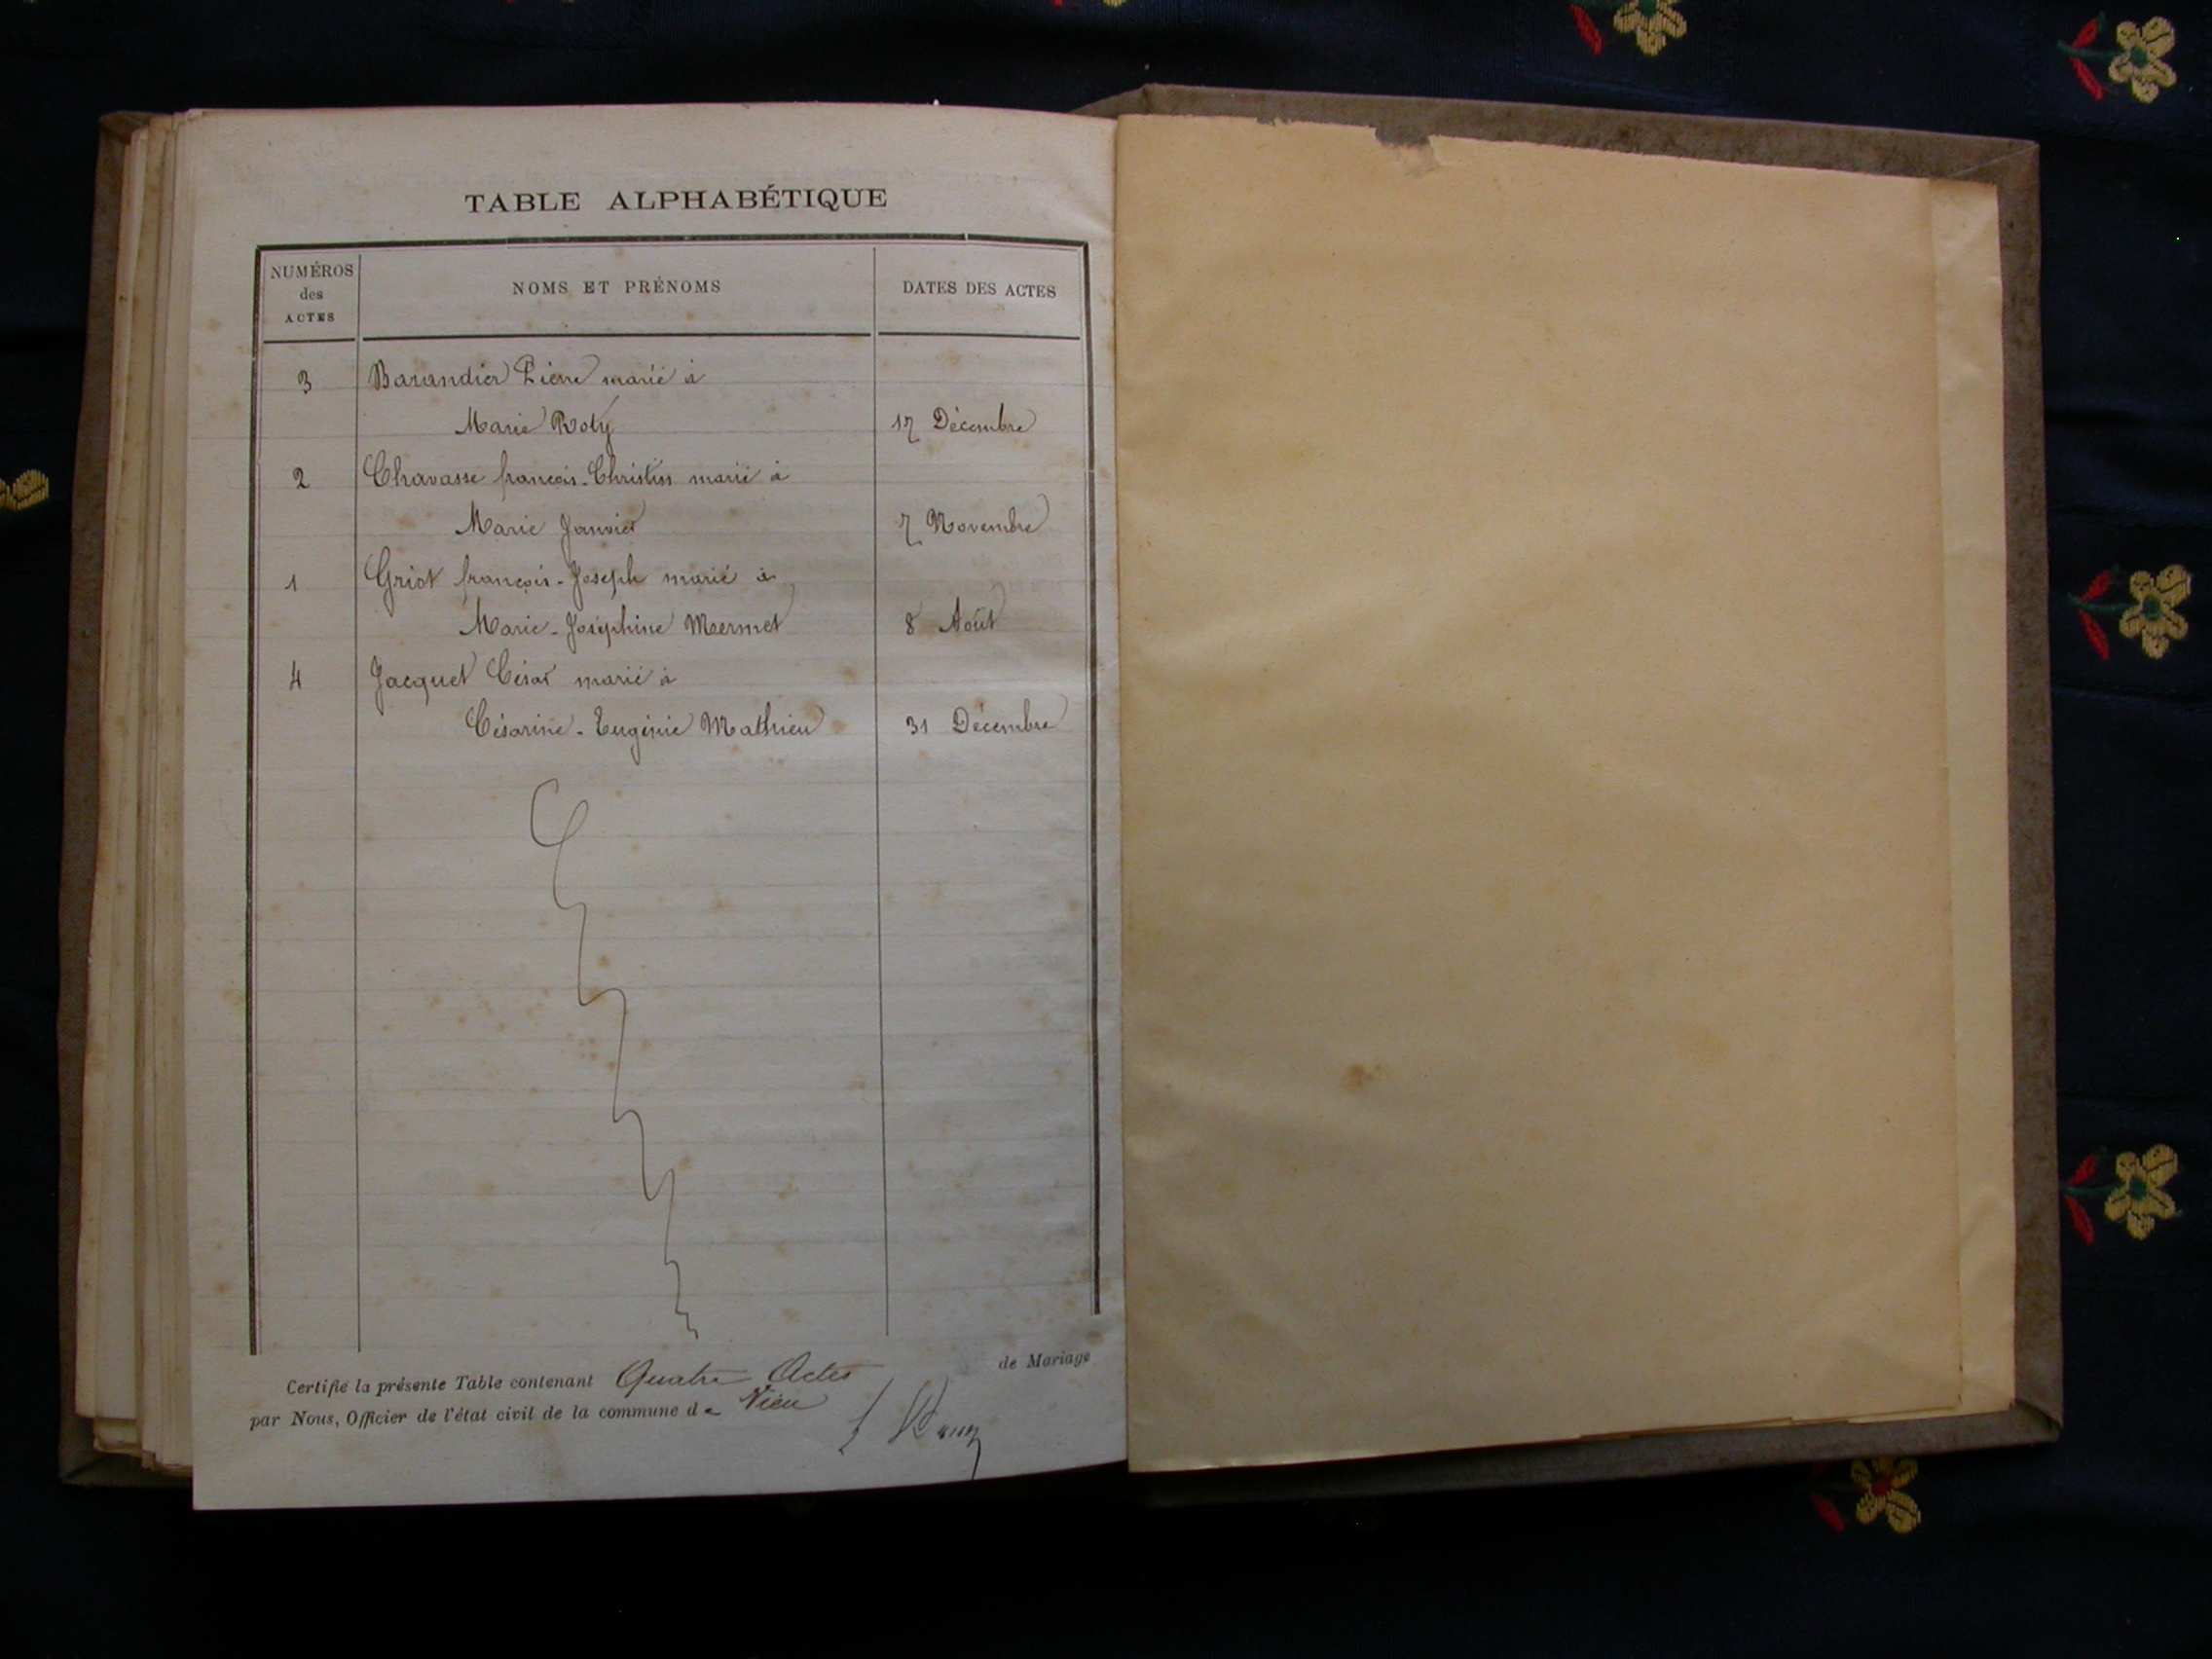 TABLE ALPHABÉTIQUE
NUMÉROS des ACTES NOMS ET PRÉNOMS DATES DES ACTES
3 Barandier Pierre marié à
Marie Roty 17 Décembre
2 Chavasse françois-Christin marié à
Marie Janvier 7 Novembre
1 Griot françois-Joseph marié à
Marie-Joséphine Mermet 8 Août
4 Jacquet César marié à
Césarine-Eugénie Mathieu 31 Décembre
Certifie la présente Table contenant Quatre Actes de Mariage
par Nous, Officier de l'état civil de la commune de Vieu